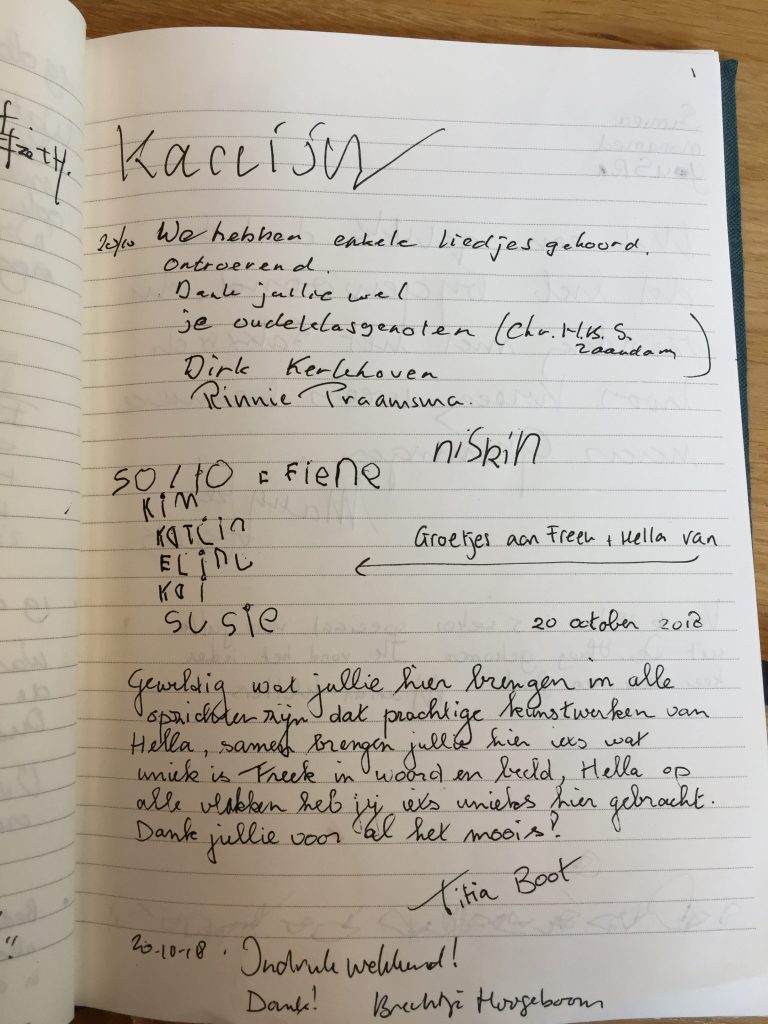 1
Kaclijn
20/10 We hebben enkele liedjes gehoord.
Ontroerend.
Dank jullie wel
je oudeklasgenoten (Chr. H.B.S.
Zaandam)
Dirk Kerkhoven
Rinnie Praamsma.
niskin
FIENE
KIM
KATCIN
KAI
SUSIE
Groetjes aan Freek + Hella van
20 october 2018
Geweldig wat jullie hier brengen in alle
zijn dat prachtige kunstwerken van
Hella, samen brengen jullie hier iets wat
uniek is Freek in woord en beeld, Hella op
alle vlakken heb jij iets unieks hier gebracht.
Dank jullie voor al het moois!
Titia Boot
20-10-18. Indrukwekkend!
Dank! Brechtje Hoogeboom